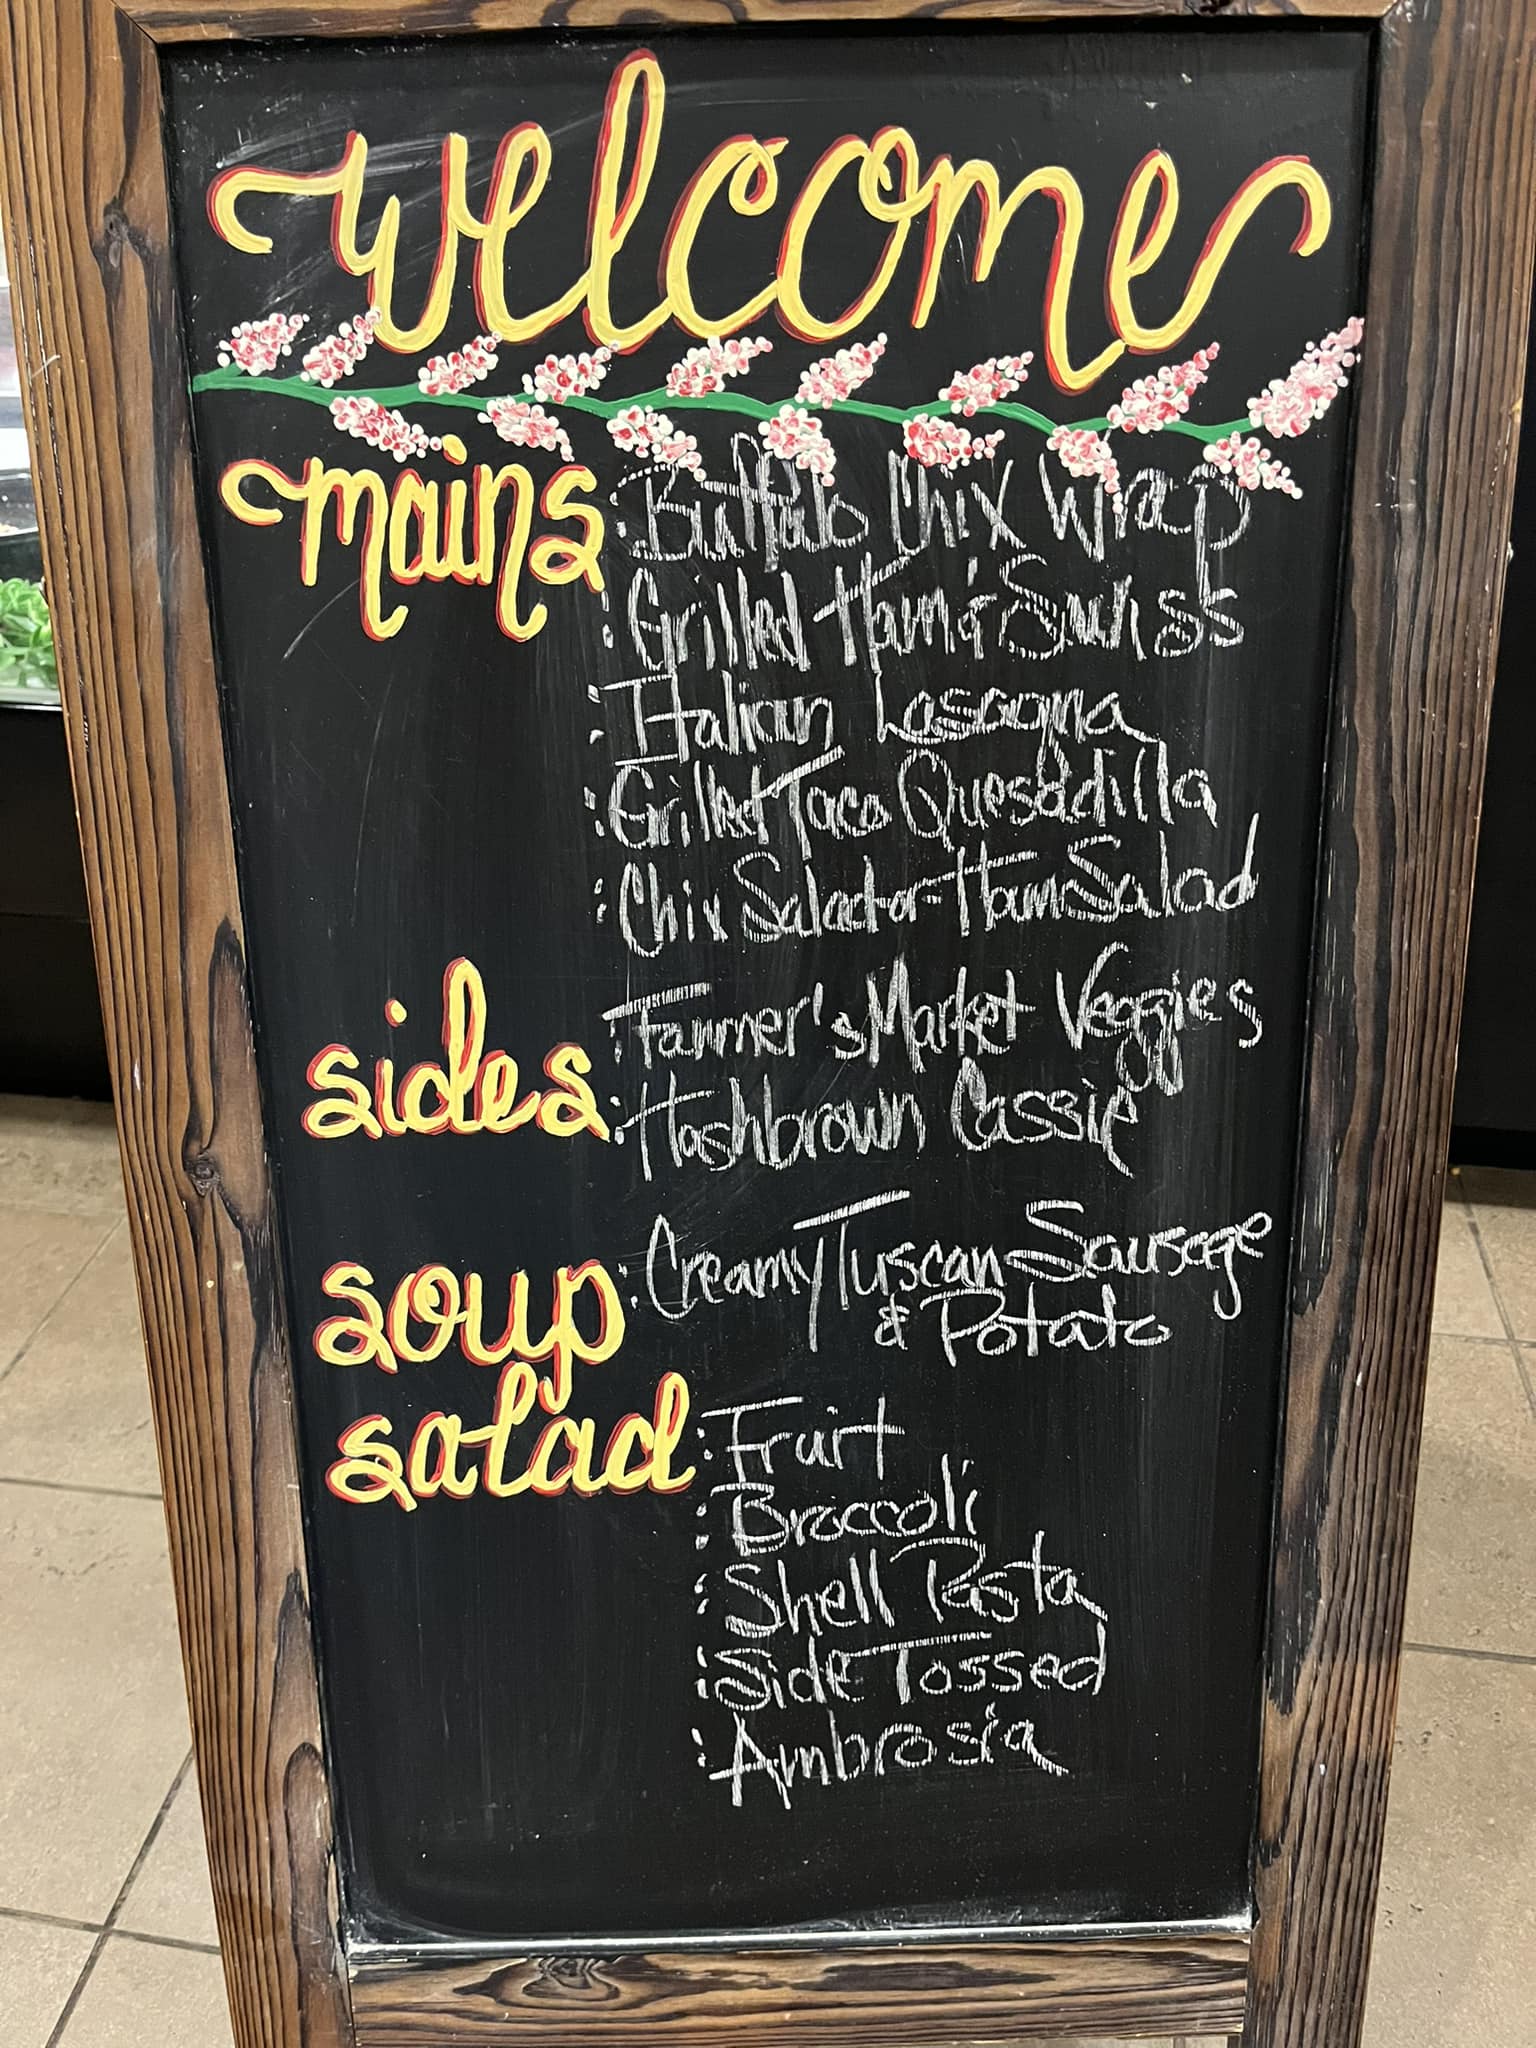 welcome
mains : Buffalo Chix Wrap
: Grilled Ham & Swiss
: Italian Lasagna
: Grilled Taco Quesadilla
: Chix Salad-or-Ham Salad
sides : Farmer's Market Veggies
: Hashbrown Cassie
soup : Creamy Tuscan Sausage
& Potato
salad : Fruit
: Broccoli
: Shell Pasta
: Side Tossed
: Ambrosia